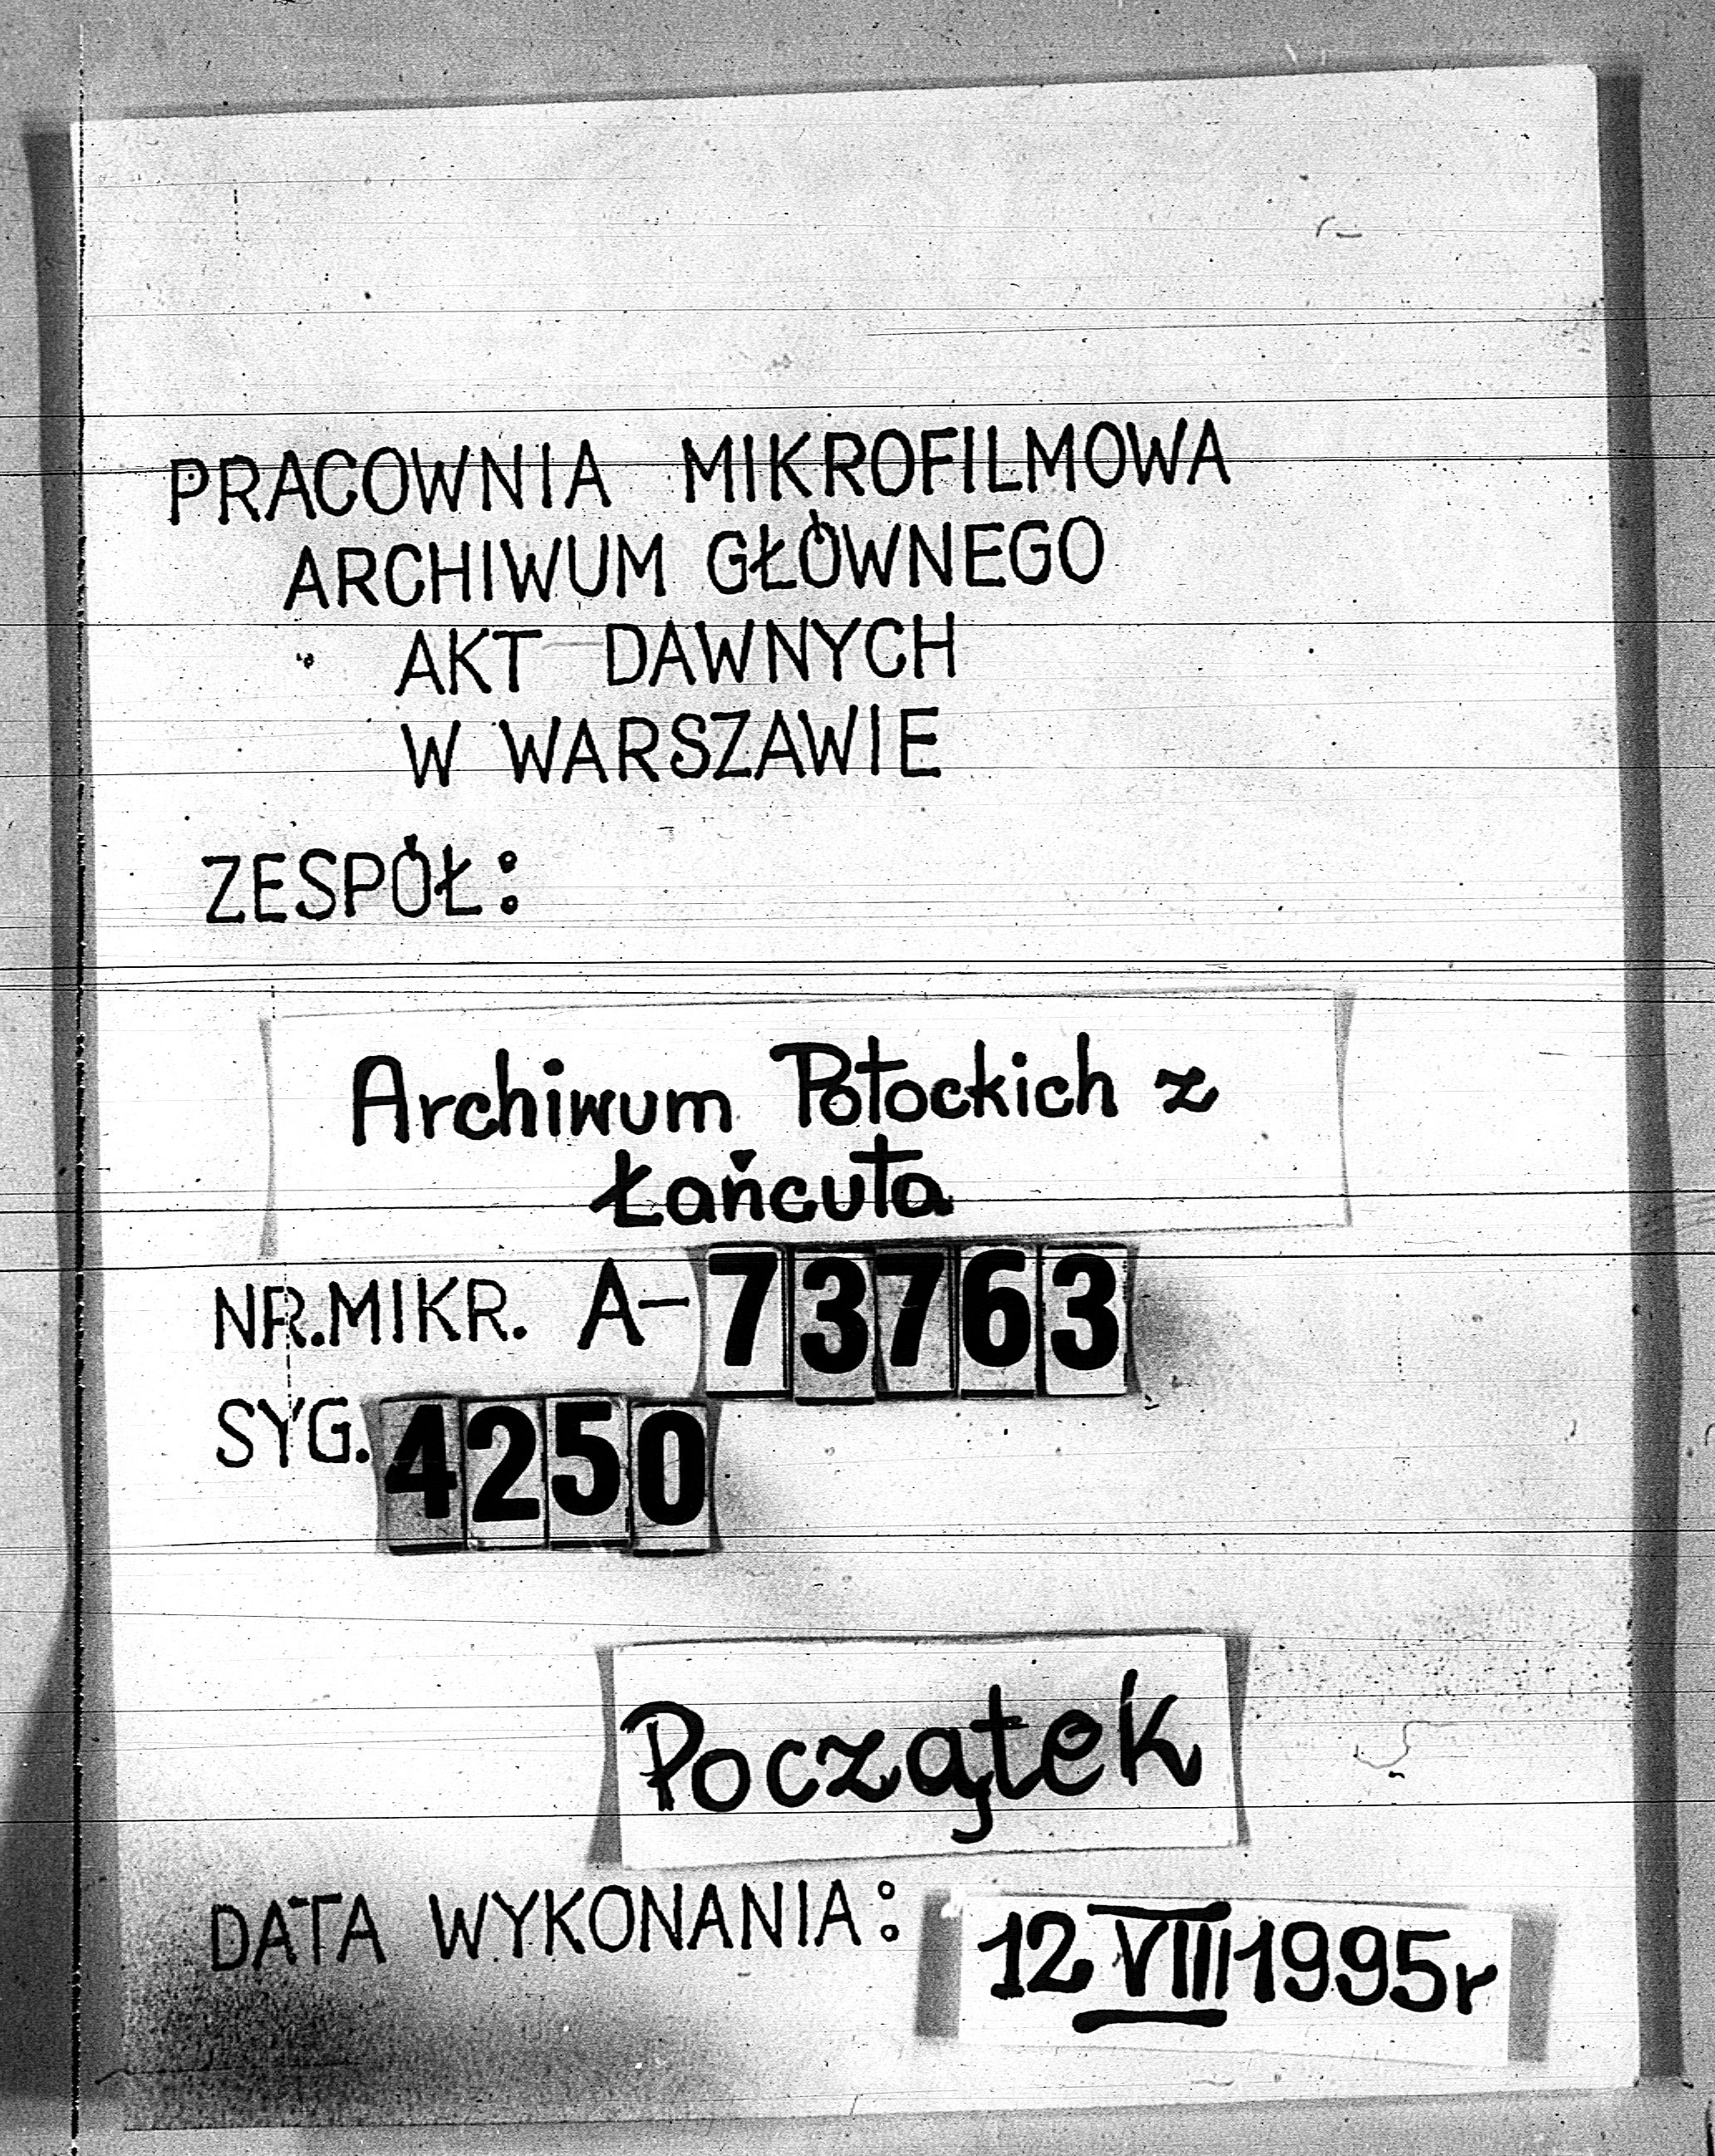 PRACOWNIA MIKROFILMOWA
ARCHIWUM GŁÓWNEGO
AKT DAWNYCH
W WARSZAWIE
ZESPÓŁ:
Archiwum Potockich z
Łańcuta
NR.MIKR. A-73763
SYG. 4250
Początek
DATA WYKONANIA: 12 VIII 1995r